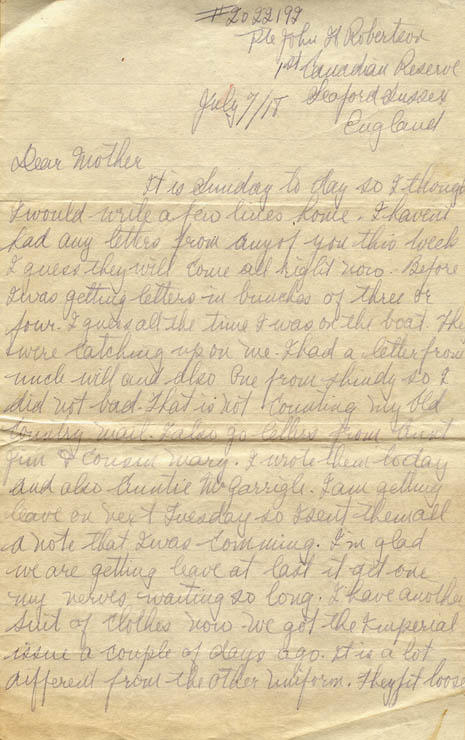 #2022192
Pte John H Robertson
1st Canadian Reserve
Seaford Sussex
July 7/18
England
Dear Mother
It is Sunday to day so I though
I would write a few lines home. I havent
had any letters from any of you this week
I guess they will come all right now. Before
I was getting letters in bunches of three or
four. I guess all the time I was on the boat. The
were catching up on me. I had a letter from
uncle will and also One from so I
did not bad. That is not counting my Old
Country mail. I also go letters from Aunt
Jim & Cousin Mary. I wrote them today
and also Auntie McGarrigle. I am getting
leave on next Tuesday so I sent them all
a note that I was comming. I'm glad
we are getting leave at last it get one
my nerves waiting so long. I have another
suit of clothes now we got the Imperial
issue a couple of days ago. It is a lot
different from the other uniform. They fit loose